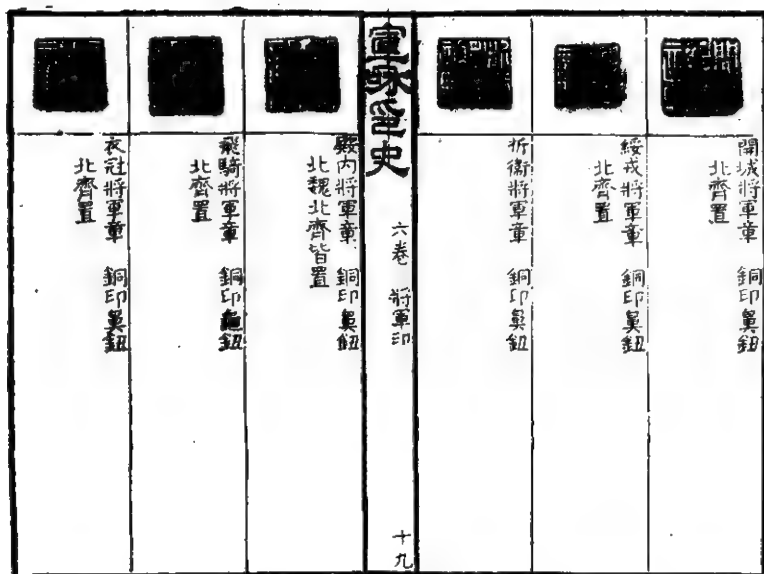 開城將軍章　銅印鼻鈕
北齊置
綏戎將軍章　銅印鼻鈕
北齊置
折衝將軍章　銅印鼻鈕
宣和印史
六卷　將軍印
十九
殿内將軍章　銅印鼻鈕
北魏北齊皆置
飛騎將軍章　銅印龜鈕
北齊置
衣冠將軍章　銅印鼻鈕
北齊置